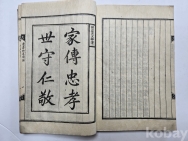 家傳忠孝
世守仁敬
kobay